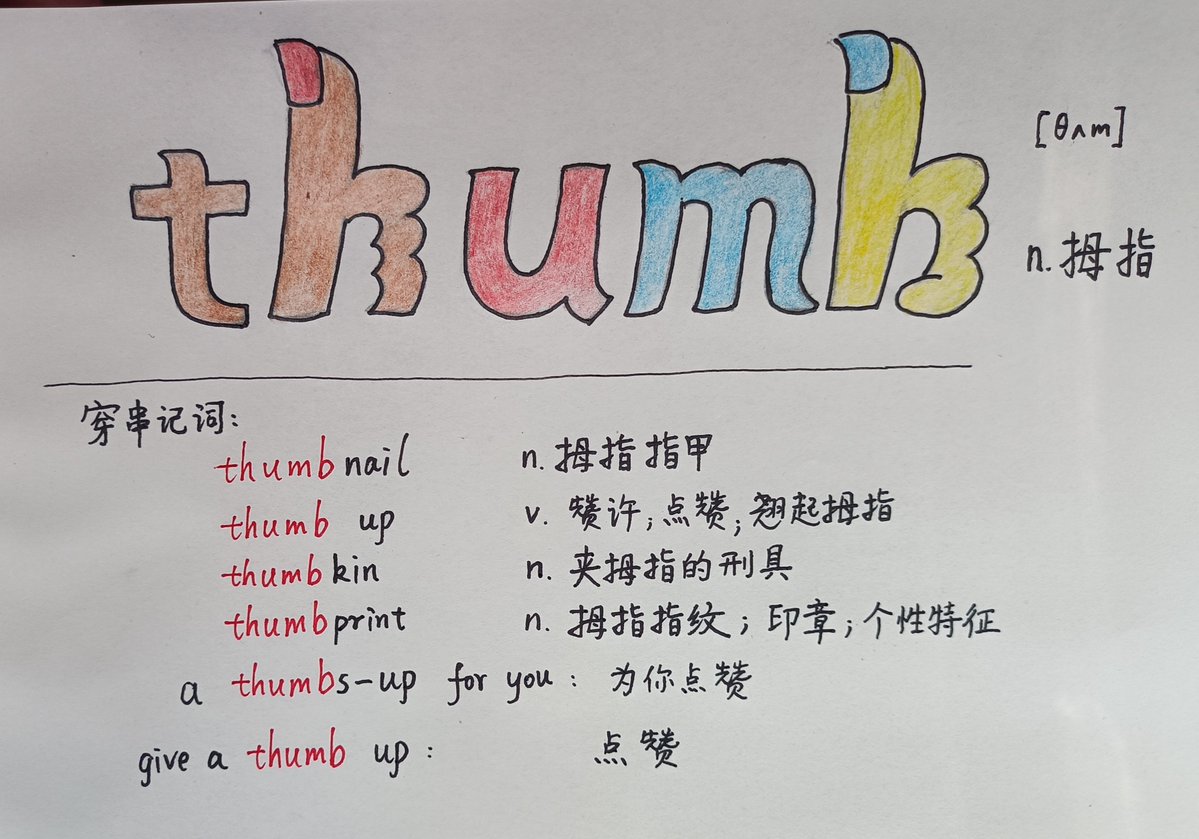 thumb [θʌm]
n. 拇指
穿串记词:
thumbnail n. 拇指指甲
thumb up v. 赞许;点赞;翘起拇指
thumbkin n. 夹拇指的刑具
thumbprint n. 拇指指纹;印章;个性特征
a thumbs-up for you: 为你点赞
give a thumb up: 点赞